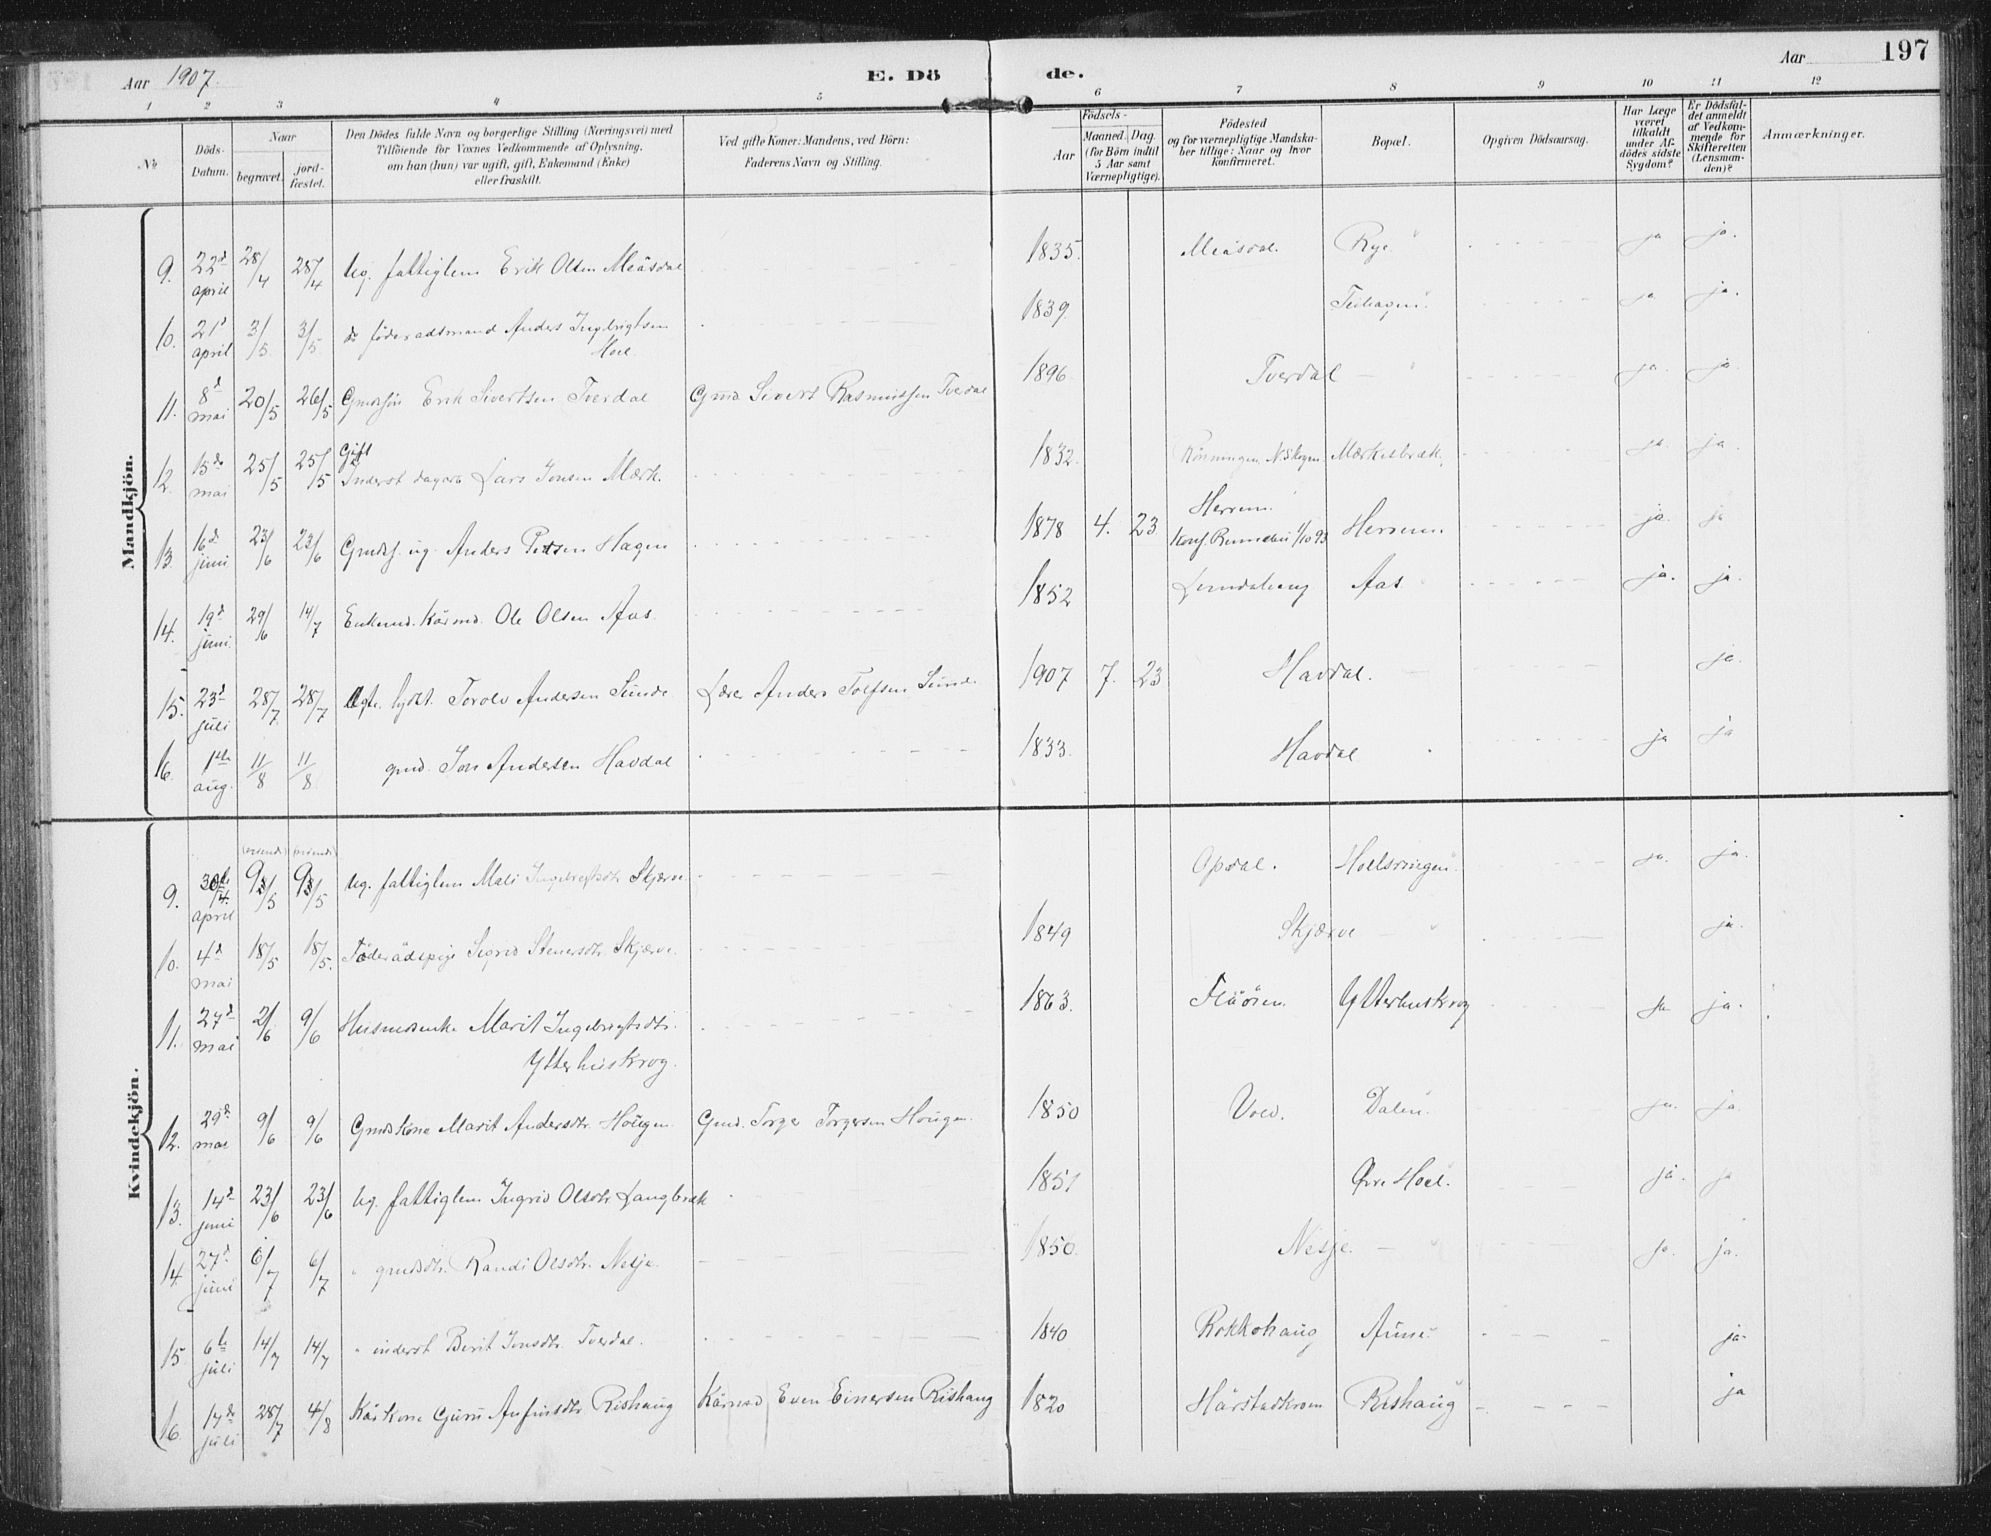 Aar 1907. E. Dö de. Aar 197
1 2 3 4 5 6 7 8 9 10 11 12
№ Döds-Datum. Naar begravet. jord-fæstet. Den Dödes fulde Navn og borgerlige Stilling (Næringsvei) med Tilföiende for Voxnes Vedkommende af Oplysning, om han (hun) var ugift, gift, Enkemand (Enke) eller fraskilt. Ved gifte Koner: Mandens, ved Börn: Faderens Navn og Stilling. Födsels- Aar Maaned. Dag. (for Börn indtil 5 Aar samt Værnepligtige). Födested og for værnepligtige Mandskaber tillige: Naar og hvor konfirmeret. Bopæl. Opgiven Dödsaarsag. Har Læge været tilkaldt under Afdödes sidste Sygdom? Er Dödsfaldet anmeldt af Vedkommende for Skifteretten (Lensmanden)? Anmærkninger.
Mandkjön.
9. 22d april 28/4 28/4 Ug. fattiglem Erik Olsen Meåsdal 1835. Meåsdal. Rye ja ja.
10. 21d april 3/5 3/5 do föderaadsmand Anders Ingebrigtsen Hoel. 1839. ja ja.
11. 8d mai 20/5 26/5 Gmdssön Erik Sivertsen Tverdal Gmd Sivert Rasmussen Tverdal 1896. Tverdal — " ja. ja.
12. 15de mai 25/5 25/5 Gift Inderst dagarb Lars Jonsen Mærk. 1832. Rönningen, N Skogn Mærkesbræk. ja. ja.
13. 16d juni 23/6 23/6 Gmdss. ug. Anders Pedersen Hagen 1878 4. 23 Herrem. Konf. Rennebu 1/10 93 Herrem. ja. ja
14. 19d juni. 29/6 14/7 Enkemd. Kårmd. Ole Olsen Aas. 1852 Lundahaug Aas ja. ja.
15. 23d juli 28/7 28/7 Ægte. Torolv Andersen Sunde. Lærer Anders Tolfsen Sunde 1907 7. 23 Havdal. — ja.
16. 1ste aug. 11/8 11/8 gmd. Jon Andersen Havdal 1833. Havdal " ja ja
Kvindekjön.
9. 30te april 9/5 9/5 Ug. fattiglem Mali Ingebrigtsdtr Skjærve Opdal. Hoelsvingen. ja. ja.
10. 4d mai 18/5 18/5. Föderådspige Sigrid Stenersdtr Skjærve. 1849 Skjærve — " ja.
11. 27d mai 2/6 9/6 Husmdsenke Marit Ingebrigtsdtr. Ytterhuskrog. 1863. Flåöien. Ytterhuskrog ja. ja.
12. 29d mai 9/6 9/6 Gmdskone Marit Andersdtr Haugen. Gmd. Torger Torgersen Haugen. 1850 Vold. Dalen. ja. ja
13. 14d juni 23/6 23/6 Ug. fattiglem Ingrid Olsdtr Langbræk 1851 Övre Hoel. ja. ja
14. 27d juni 6/7 6/7 " gmdsdtr. Randi Olsdtr. Nesje. 1850. Nesje. — " ja. ja.
15. 6te juli 14/7 14/7 " inderst Berit Jonsdtr. Tverdal. 1840 Rokkohaug Aune ja.
16. 17de juli 28/7 4/8 Kårkone Guru Anfinsdtr Rishaug Kårmd Even Einersen Rishaug 1820 Hårstadkrom Rishaug ja